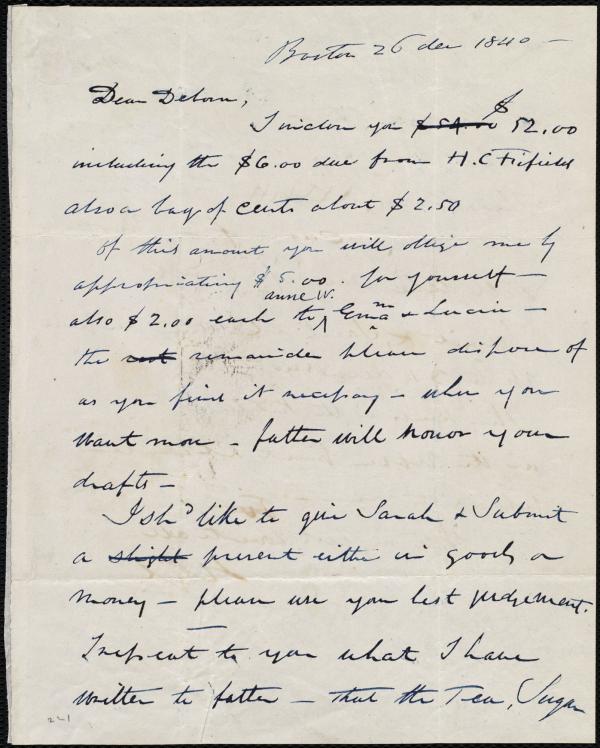 Boston 26 dec 1840 —
Dear Debora,
I inclose you $54.00 $52.00
including the $6.00 due from H. C Fifield
also a bag of cents about $2.50
Of this amount you will oblige me by
appropriating $5.00. for yourself —
also $2.00 each to anne W. Emma & Lucia —
the rest remainder please dispose of
as you find it necessary — when you
want more — father will honor your
drafts —
I shd like to give Sarah & Submit
a slight present either in goods or
money — please use your best judgement.
I repeat to you what I have
written to father — that the Tea, Sugar